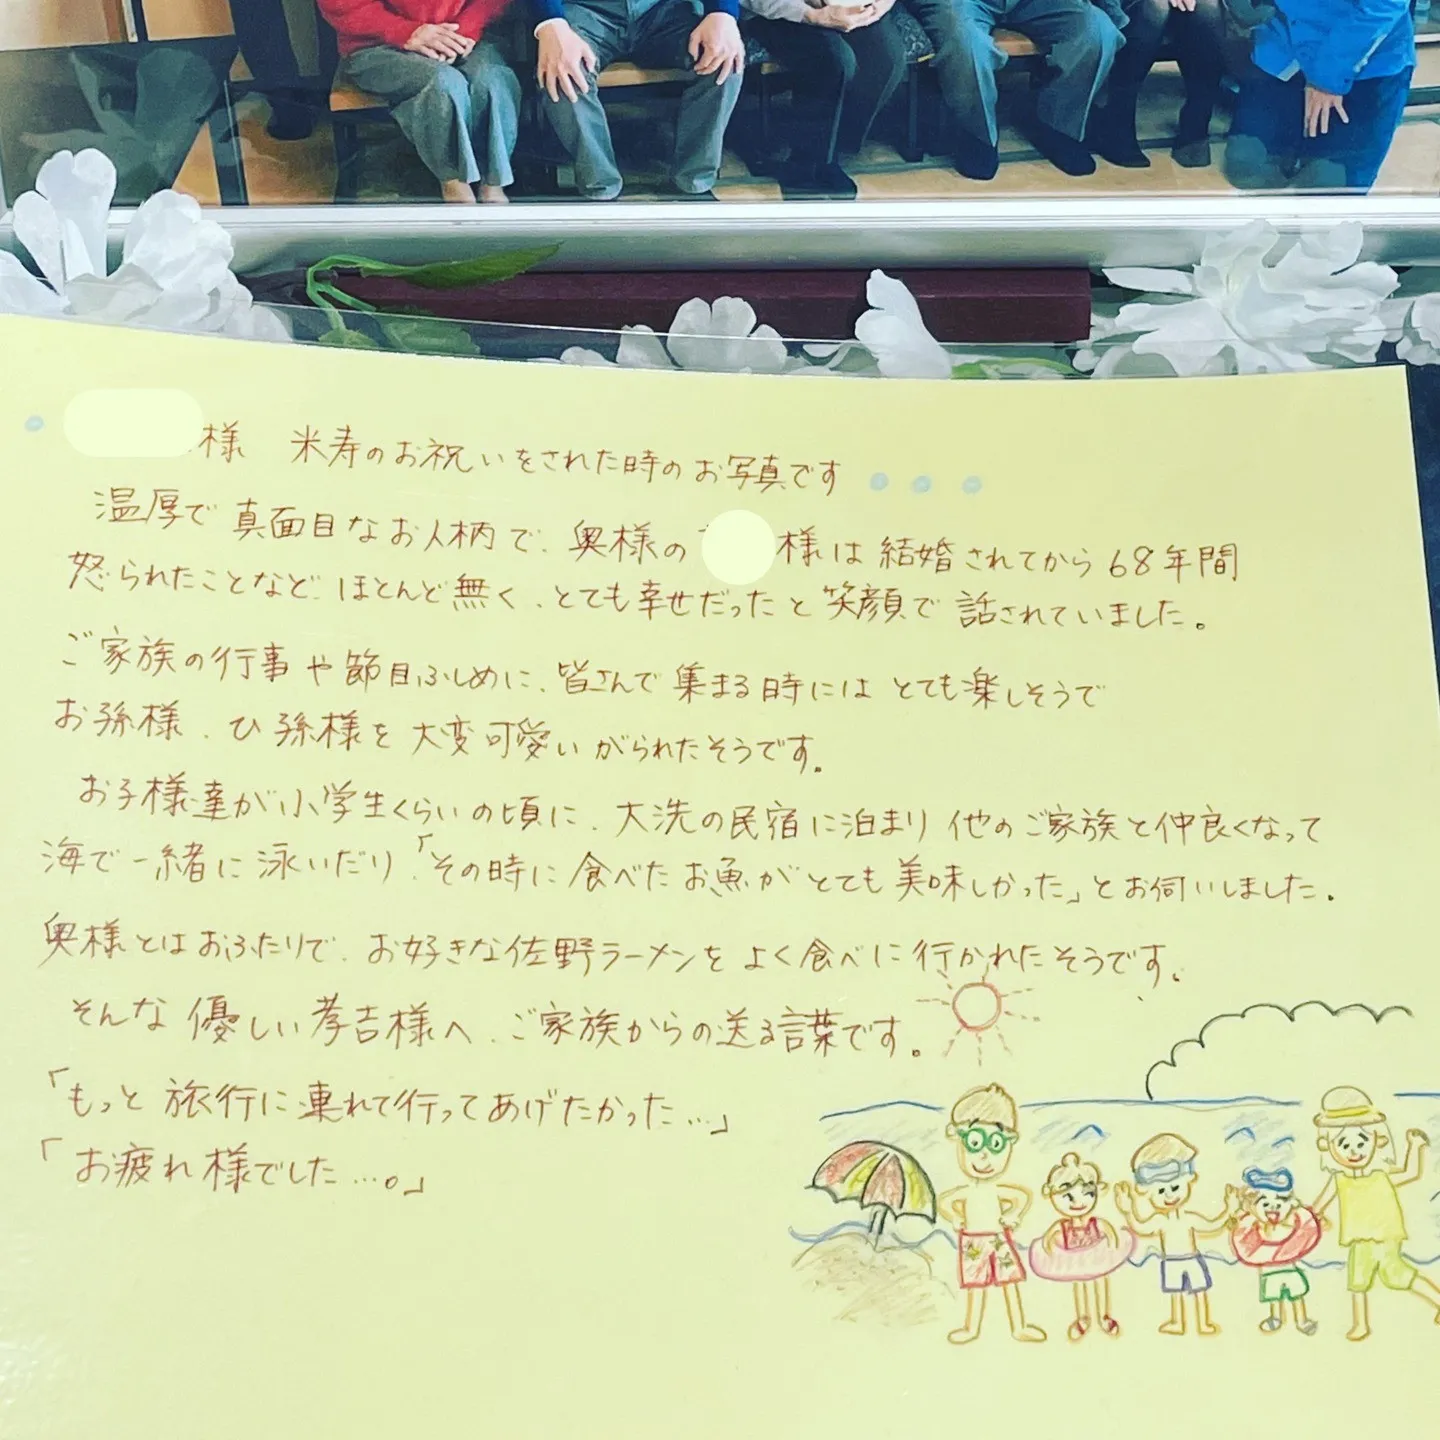 様 米寿のお祝いをされた時のお写真です
温厚で真面目なお人柄で、奥様の 様は結婚されてから68年間
怒られたことなど、ほとんど無く、とても幸せだったと笑顔で話されていました。
ご家族の行事や節目ふしめに、皆さんで集まる時にはとても楽しそうで
お孫様、ひ孫様を大変可愛いがられたそうです。
お子様達が小学生くらいの頃に、大洗の民宿に泊まり他のご家族と仲良くなって
海で一緒に泳いだり、「その時に食べたお魚がとても美味しかった」とお伺いしました。
奥様とはおふたりで、お好きな佐野ラーメンをよく食べに行かれたそうです。
そんな優しい孝吉様へ、ご家族からの送る言葉です。
「もっと旅行に連れて行ってあげたかった…」
「お疲れ様でした…。」